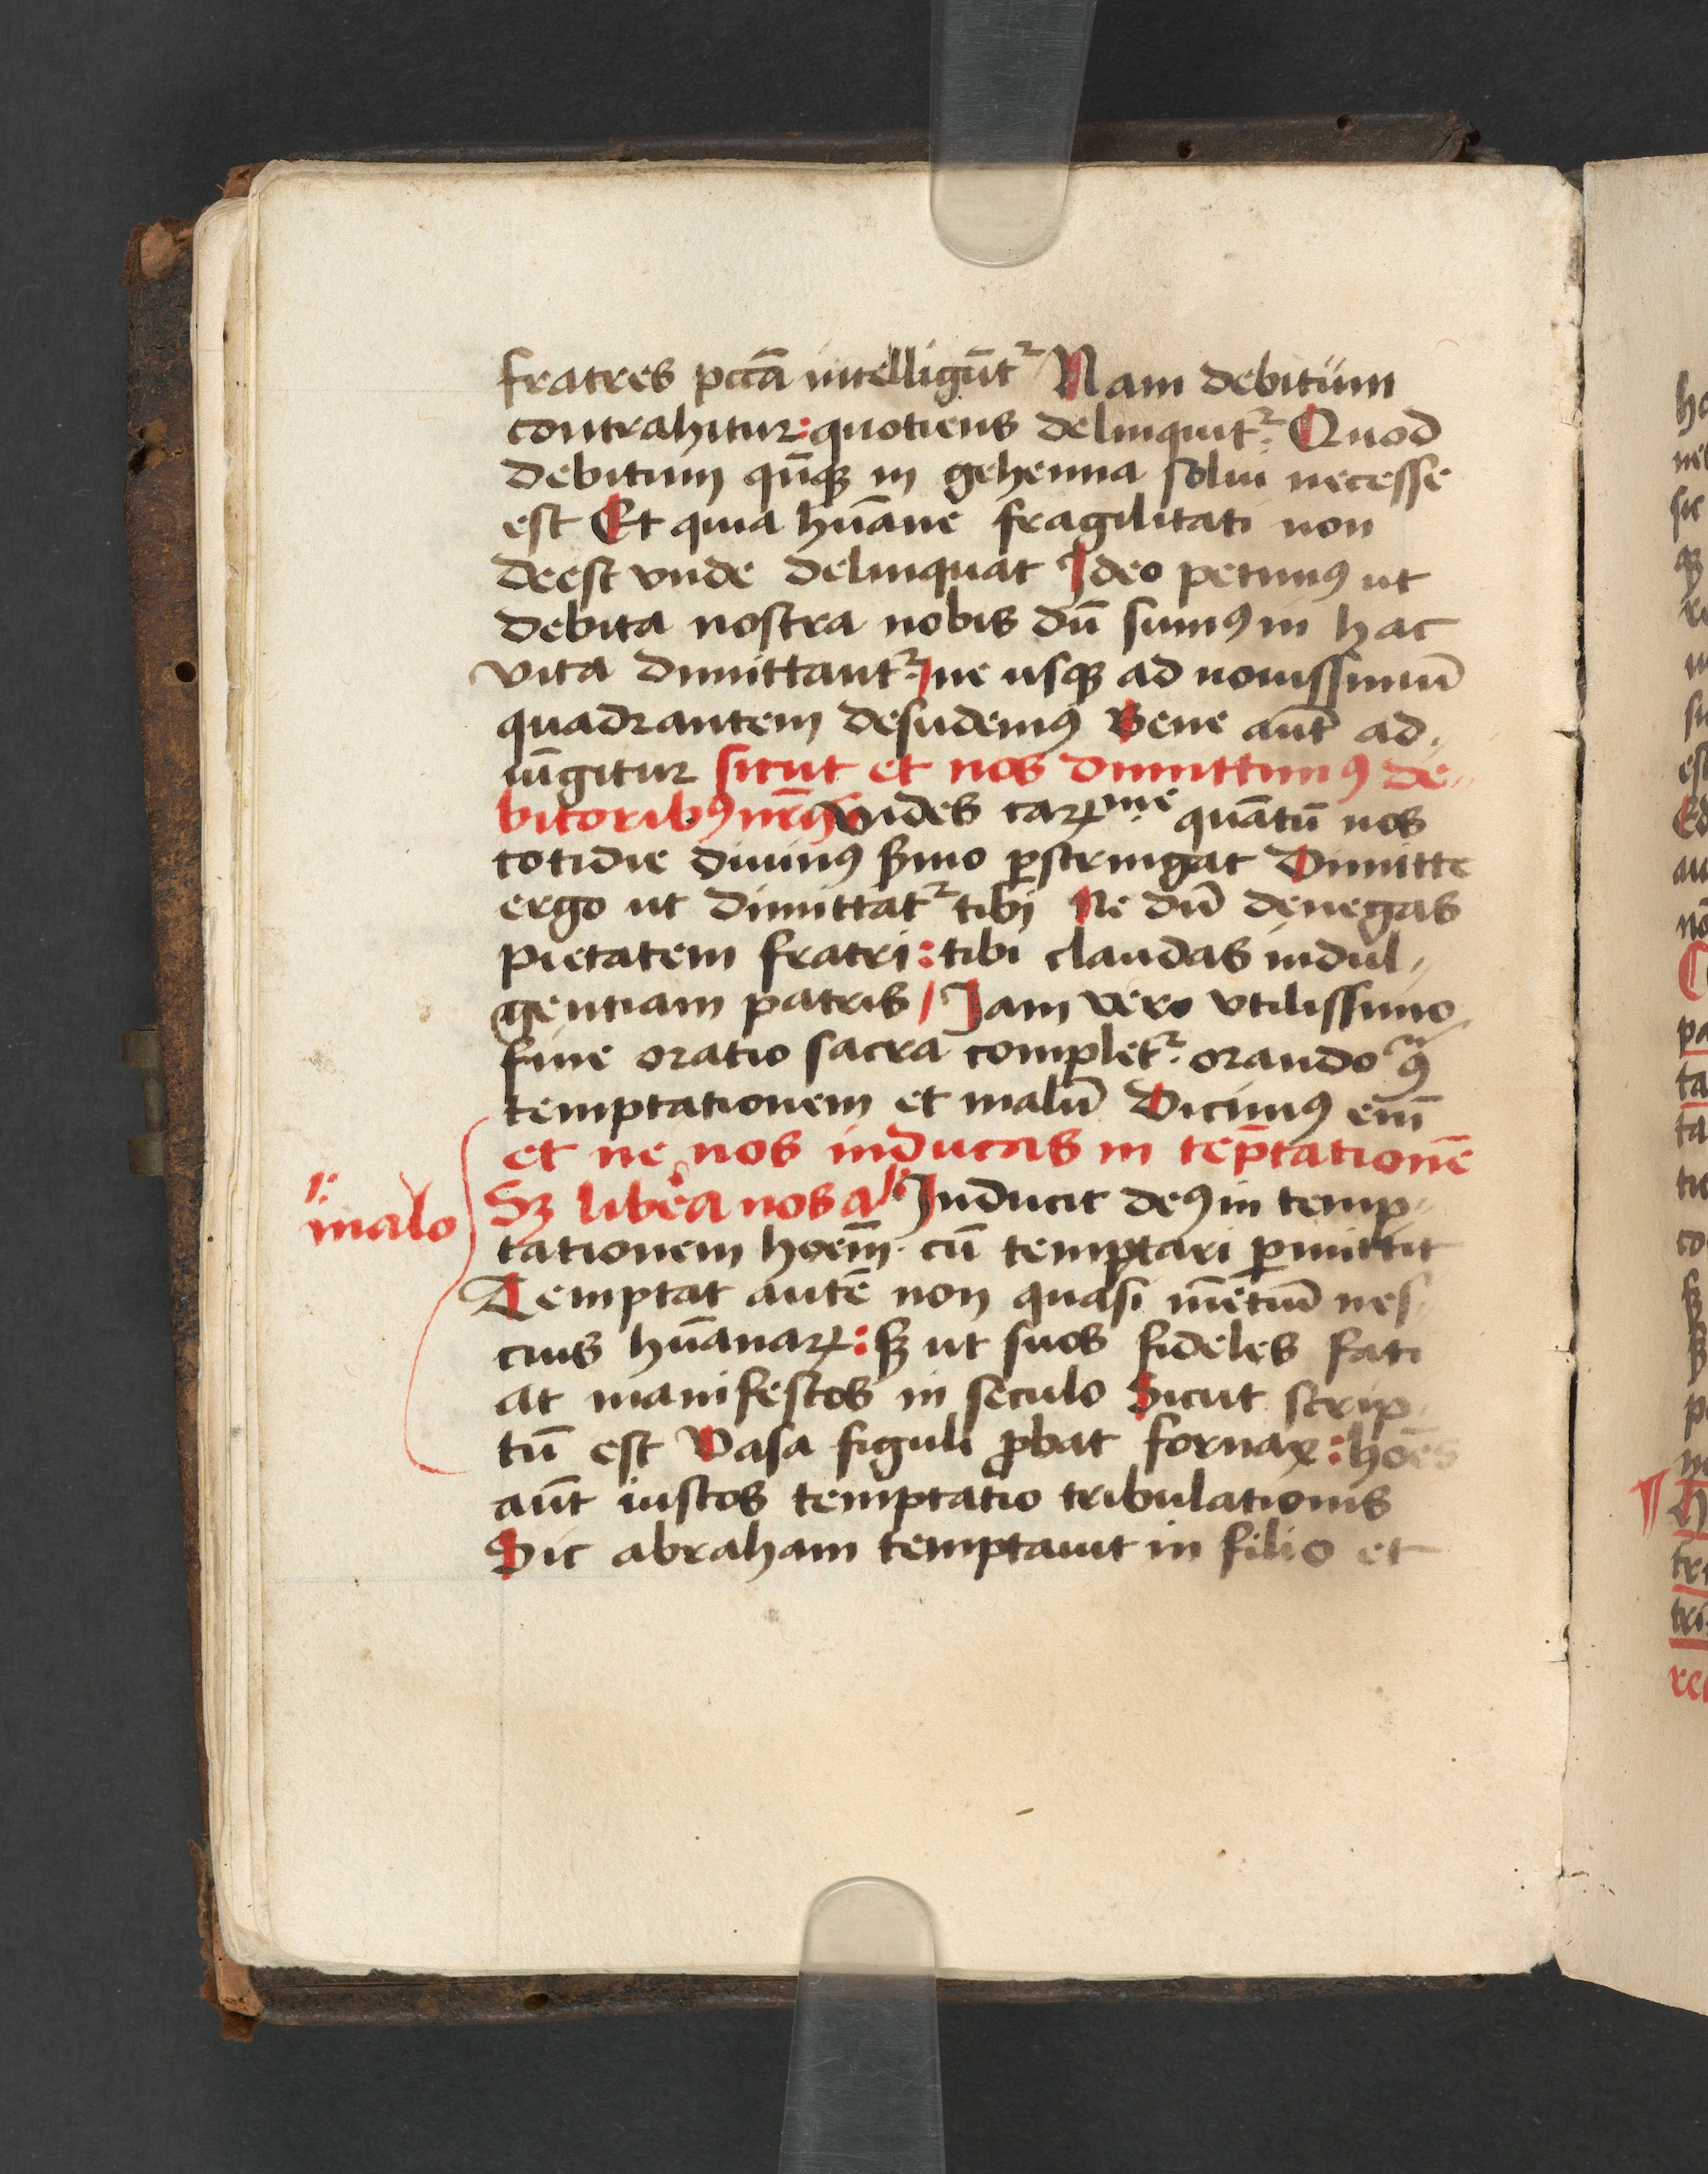 fratres pctā intelligūtᷣ Nam debitum
contrahitur: quotiens delinquitᷣ. Quod
debitum qūqꝫ in gehenna solui necesse
est Et quia hūane fragilitati non
deest vnde delinquat Ideo petimꝰ ut
debita nostra nobis dū sumꝰ in hac
vita dimittantᷣ. / ne usqꝫ ad nouissimū
quadrantem desudemꝰ Bene aūt ad
iūgitur sicut et nos dimittimꝰ de//
bitoribꝰ nr̄is Vides carꝫme quātū nos
cotidie diuinꝰ s̄mo ꝑstringat Dimitte
ergo ut dimittatᷣ tibi Ne dū denegas
pietatem fratri: tibi claudas indul//
gentiam patris / Jam vero vtilissimo
fine oratio sacra completᷣ. orando ꝯ̄
temptationem et malū Dicimꝰ eni̅
et ne nos inducas in tēptationē
Sꝫ libea nos a /: Inducit deꝰ in temp//
/: malo
tationem hoēm. cū temptari ꝑmittit
Temptat autē non quasi mētiū nes
cius hūanaꝝ: sꝫ ut suos fideles faci
at manifestos in seculo Sicut scrip
tū est Vasa figuli ꝓbat fornax: hoēs
aūt iustos temptatio tribulationis
Sic abraham temptauit in filio et